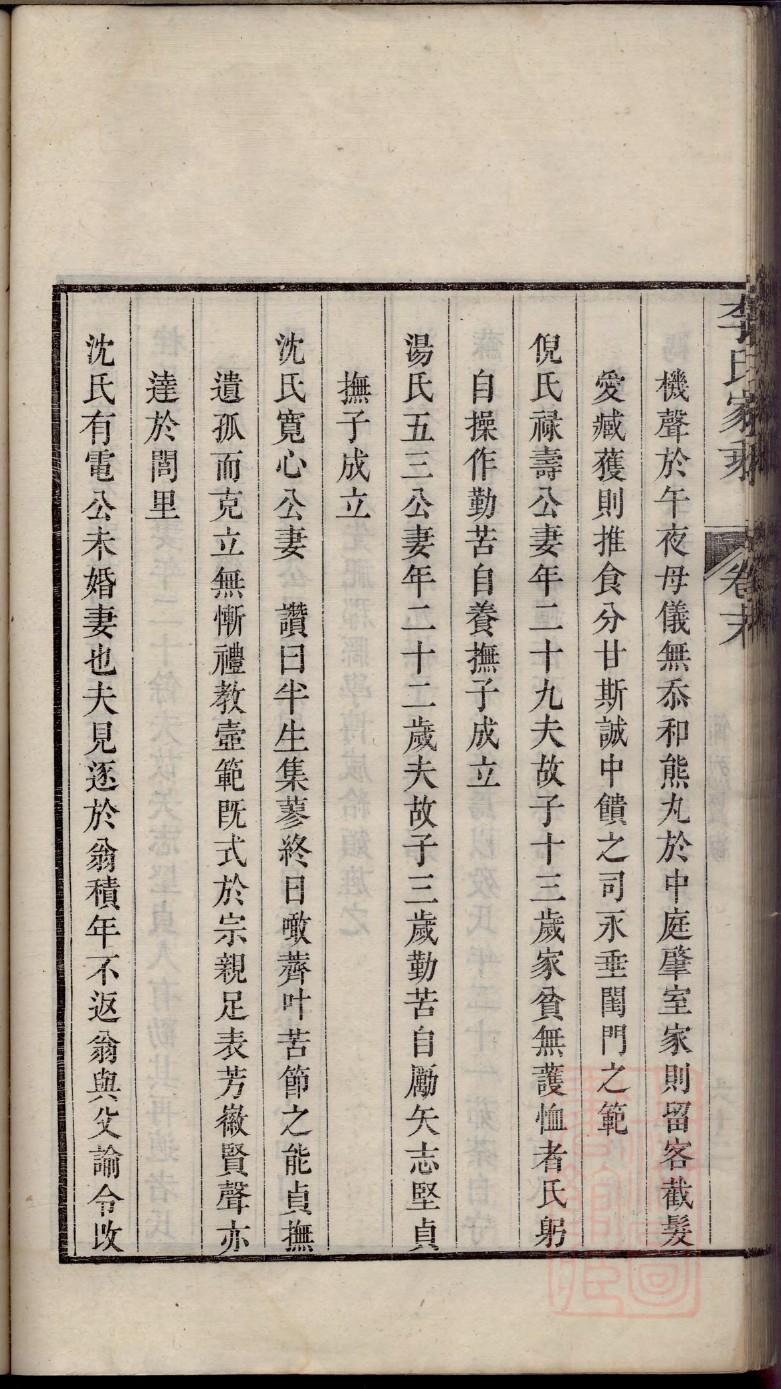 李氏家乘 卷末
機聲於午夜母儀無忝和熊丸於中庭肇室家則留客截髮
愛臧獲則推食分甘斯誠中饋之司永垂閨門之範
倪氏祿壽公妻年二十九夫故子十三歲家貧無護恤者氏躬
自操作勤苦自養撫子成立
湯氏五三公妻年二十二歲夫故子三歲勤苦自勵矢志堅貞
撫子成立
沈氏寬心公妻 讚曰半生集蓼終日噉薺叶苦節之能貞撫
遺孤而克立無慚禮教壼範既式於宗親足表芳徽賢聲亦
達於閭里
沈氏有電公未婚妻也夫見逐於翁積年不返翁與父諭令改